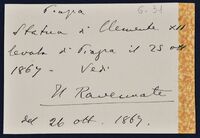 Piazza
6.31
Statua di Clemente XII
levata di Piazza il 25 ott
1867 - Vedi
Il Ravennate
del 26 ott. 1867.